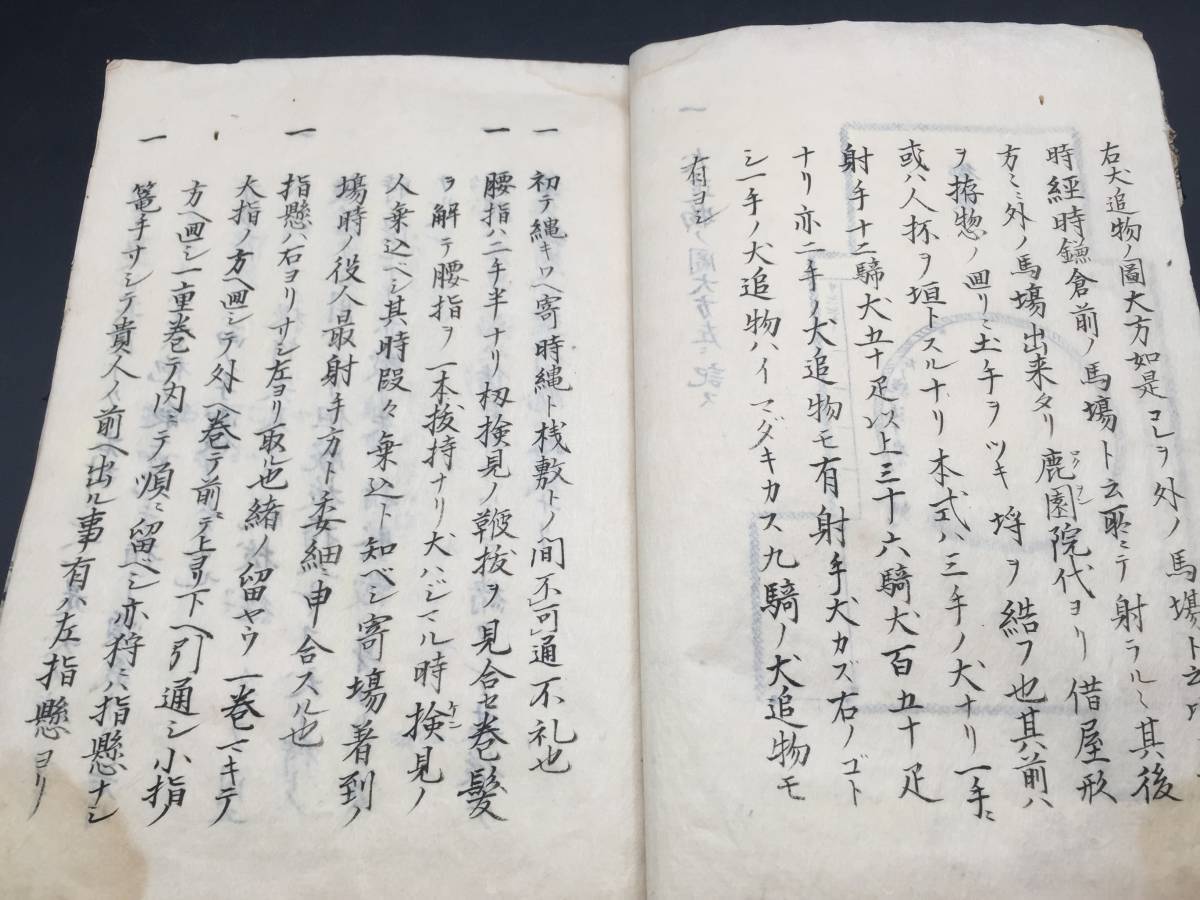 右犬追物ノ圖大方如是コレヲ外ノ馬場ト云
時經時鎌倉前ノ馬場ト云耴ミテ射ラルヽ其後
方ミミ外ノ馬塲出来タリ鹿園院代ヨリ借屋形
ヲ拵惣ノ囬リミ土手ヲツキ埒ヲ結フ也其前ハ
或ハ人抔ヲ垣トスルナリ本式ハ三手ノ犬ナリ一手ニ
射手十二騎犬五十疋以上三十六騎犬百五十疋
ナリ亦二手ノ犬追物モ有射手犬カズ右ノゴト
シ一手ノ犬追物ハイマダキカス九騎ノ犬追物モ
有ヨシ
一 初テ縄キワヘ寄時縄ト桟敷トノ間不可通不礼也
一 腰指ハ二手半ナリ扨検見ノ鞭抜ヲ見合セ巻髪
ヲ解テ腰指ヲ一本抜持ナリ犬ハジマル時検見ノ
人乗込ヘシ其時段々乗込ト知ベシ寄塲着到ノ
塲時ノ役人最射手方ト委細ニ申合スル也
一 指懸ハ右ヨリサシ左ヨリ取也緒ノ留ヤウ一巻マキテ
大指ノ方ヘ囬シテ外ヘ巻テ前ニテ上ヨリ下ヘ引通シ小指ノ
方ヘ囬シ一重巻テ内ニテ順ニ留ベシ亦狩ニハ指懸ナシ
一 篭手サシテ貴人ノ前ヘ出ル事有ハ左指懸ヨリ